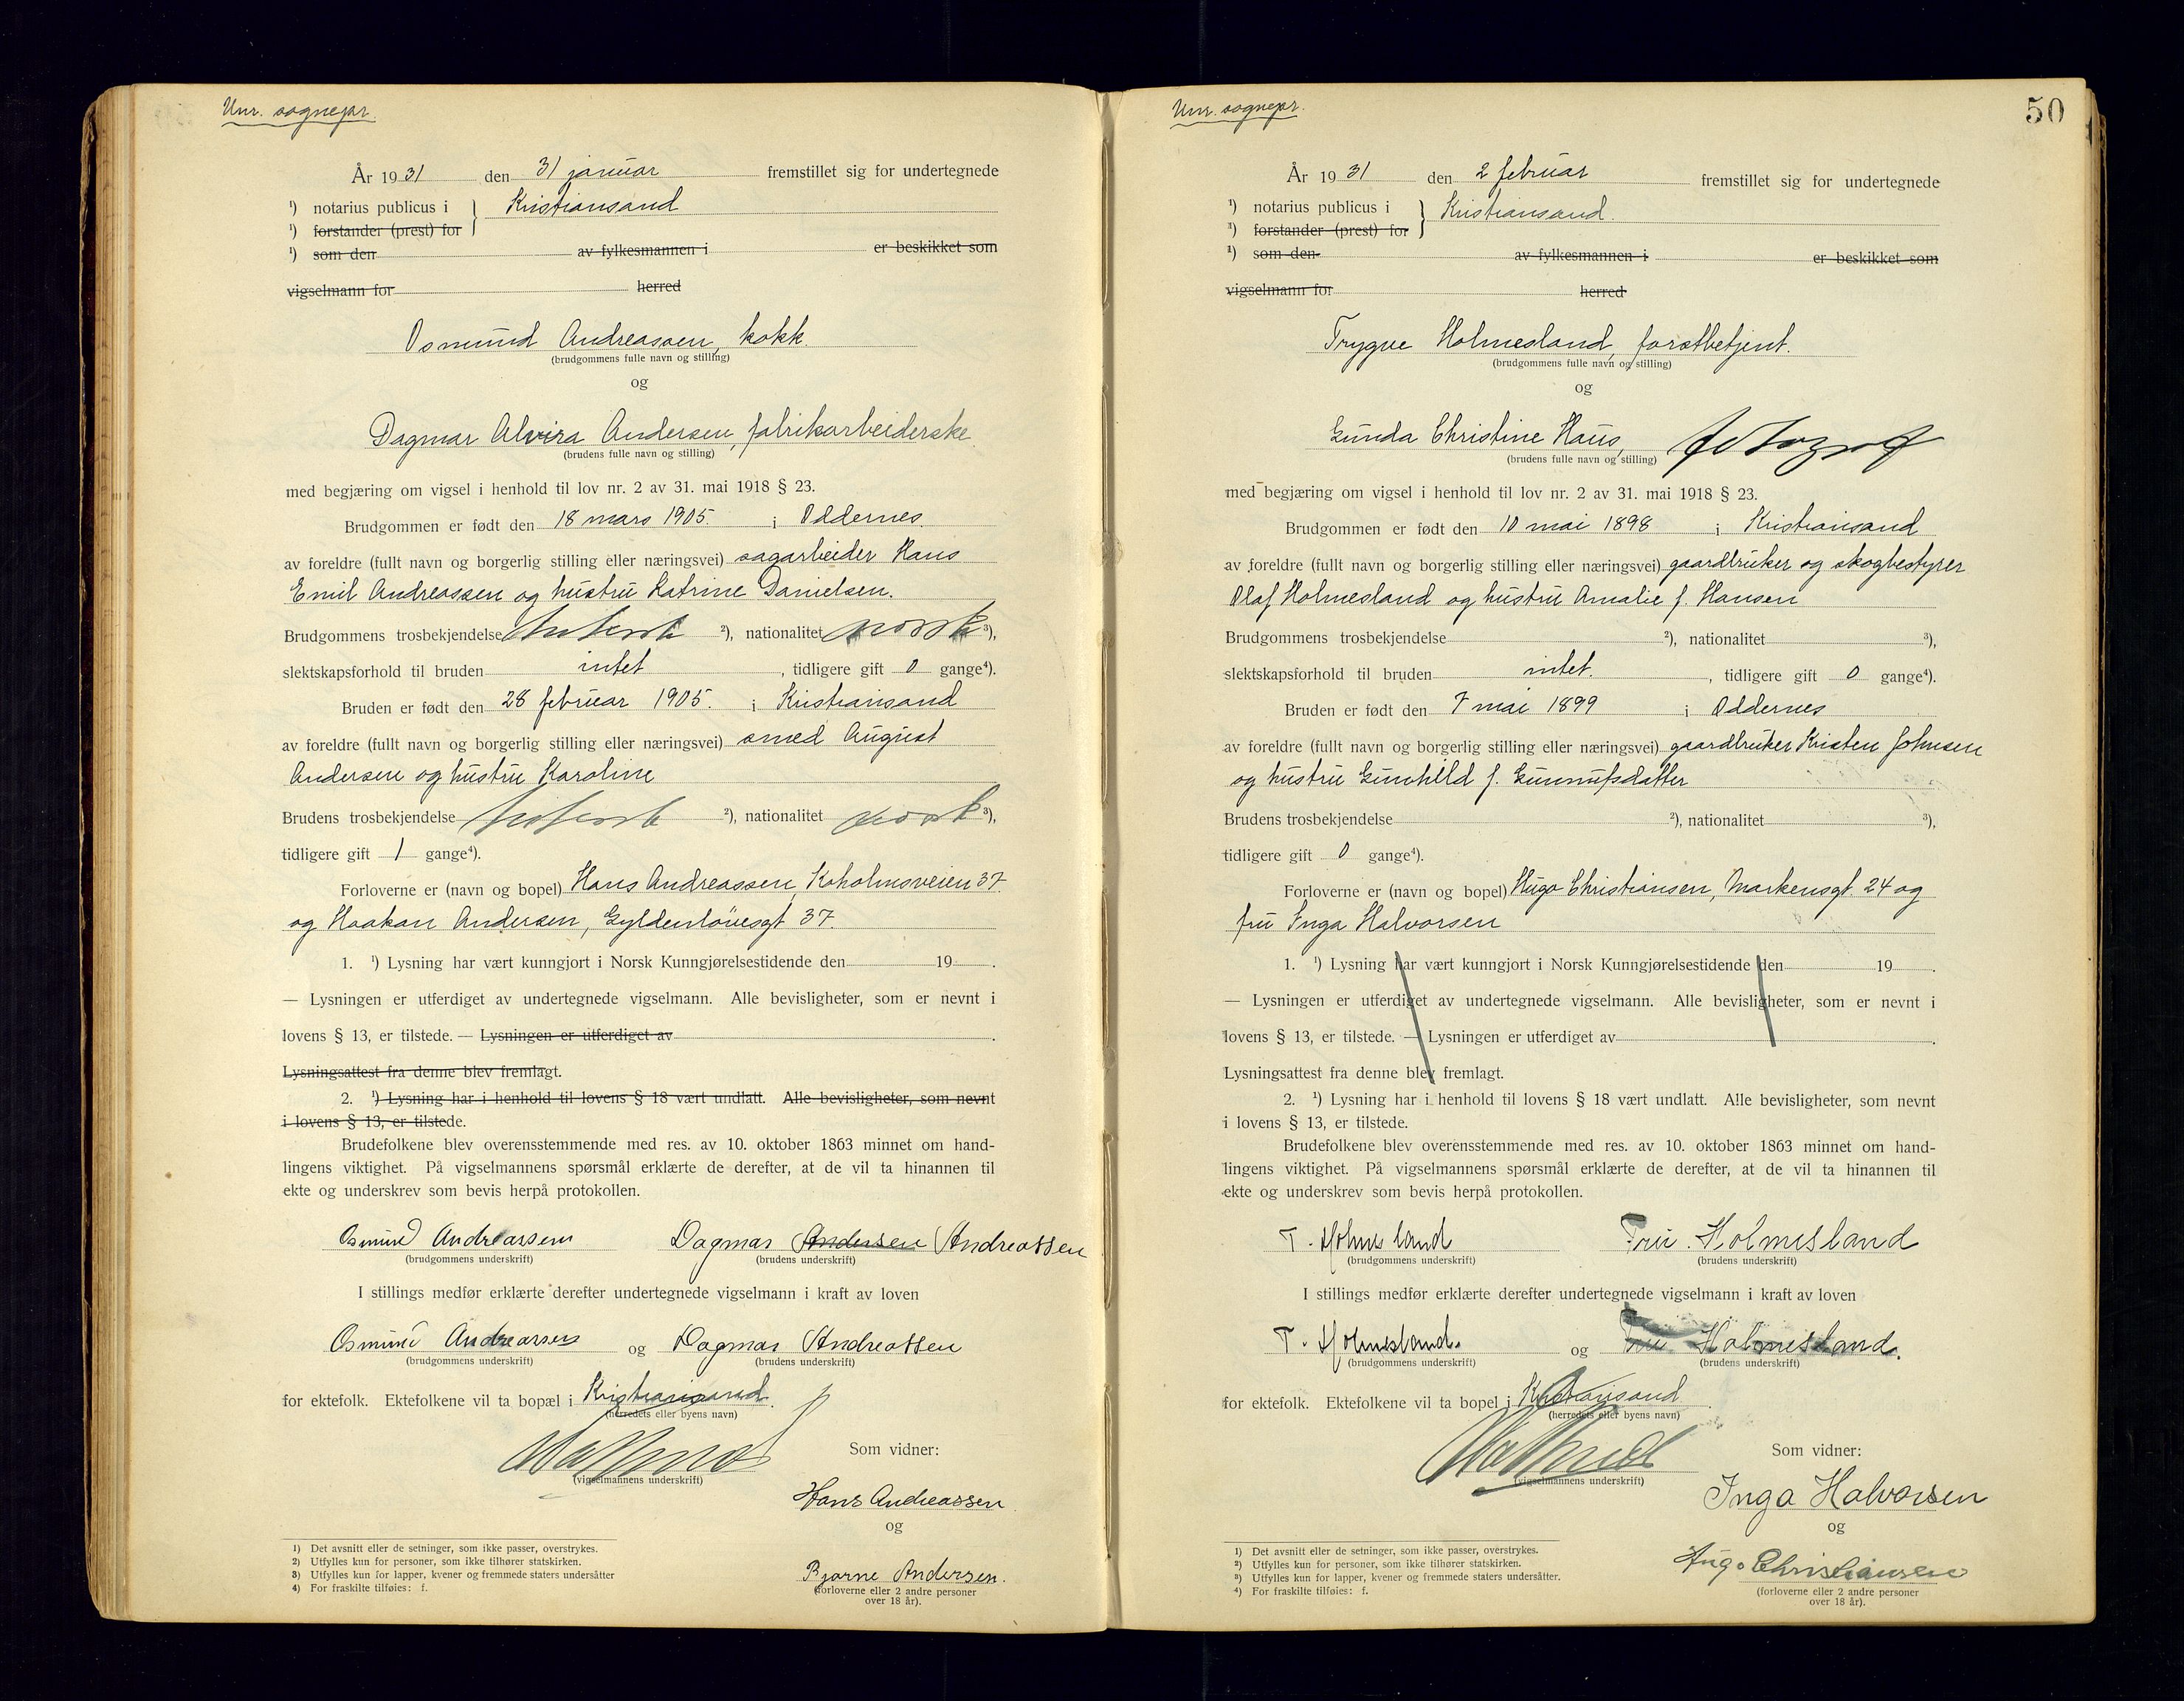 Unr. sognepr.
År 1931 den 31 januar fremstillet sig for undertegnede
¹) notarius publicus i } Kristiansand
¹) forstander (prest) for
¹) som den av fylkesmannen i er beskikket som
vigselmann for herred
Osmund Andreassen, kokk.
(brudgommens fulle navn og stilling)
og
Dagmar Alvira Andersen, fabrikarbeiderske
(brudens fulle navn og stilling)
med begjæring om vigsel i henhold til lov nr. 2 av 31. mai 1918 § 23.
Brudgommen er født den 18 mars 1905. i Oddernes.
av foreldre (fullt navn og borgerlig stilling eller næringsvei) sagarbeider Hans
Emil Andreassen og hustru Katrine Danielsen.
Brudgommens trosbekjendelse luthersk ²), nationalitet norsk ³),
slektskapsforhold til bruden intet, tidligere gift 0 gange⁴).
Bruden er født den 28 februar 1905. i Kristiansand
av foreldre (fullt navn og borgerlig stilling eller næringsvei) smed August
Andersen og hustru Karoline
Brudens trosbekjendelse luthersk ²), nationalitet norsk ³),
tidligere gift 1 gange⁴).
Forloverne er (navn og bopel) Hans Andreassen, Koholmsveien 37.
og Haakon Andersen, Gyldenløvesgt 37.
1. ¹) Lysning har vært kunngjort i Norsk Kunngjørelsestidende den 19 .
— Lysningen er utferdiget av undertegnede vigselmann. Alle bevisligheter, som er nevnt i
lovens § 13, er tilstede. — Lysningen er utferdiget av .
Lysningsattest fra denne blev fremlagt.
2. ¹) Lysning har i henhold til lovens § 18 vært undlatt. Alle bevisligheter, som nevnt
i lovens § 13, er tilstede.
Brudefolkene blev overensstemmende med res. av 10. oktober 1863 minnet om hand-
lingens viktighet. På vigselmannens spørsmål erklærte de derefter, at de vil ta hinannen til
ekte og underskrev som bevis herpå protokollen.
Osmund Andreassen Dagmar Andersen Andreassen
(brudgommens underskrift) (brudens underskrift)
I stillings medfør erklærte derefter undertegnede vigselmann i kraft av loven
Osmund Andreassen og Dagmar Andreassen
(brudgommens underskrift) (brudens underskrift)
for ektefolk. Ektefolkene vil ta bopæl i Kristiansand.
(herredets eller byens navn)
(vigselmannens underskrift)
Som vidner:
Hans Andreassen
og
Bjarne Andersen.
(forloverne eller 2 andre personer
over 18 år).
1) Det avsnitt eller de setninger, som ikke passer, overstrykes.
2) Utfylles kun for personer, som ikke tilhører statskirken.
3) Utfylles kun for lapper, kvener og fremmede staters undersåtter
4) For fraskilte tilføies: f.
50
Unr. sognepr.
År 1931 den 2 februar fremstillet sig for undertegnede
¹) notarius publicus i } Kristiansand.
¹) forstander (prest) for
¹) som den av fylkesmannen i er beskikket som
vigselmann for herred
Trygve Holmesland, forstbetjent.
(brudgommens fulle navn og stilling)
og
Gunda Christine Haus, fotograf
(brudens fulle navn og stilling)
med begjæring om vigsel i henhold til lov nr. 2 av 31. mai 1918 § 23.
Brudgommen er født den 10 mai 1898 i Kristiansand
av foreldre (fullt navn og borgerlig stilling eller næringsvei) gaardbruker og skogbestyrer
Olaf Holmesland og hustru Amalie f. Hansen
Brudgommens trosbekjendelse ²), nationalitet ³),
slektskapsforhold til bruden intet., tidligere gift 0 gange⁴).
Bruden er født den 7 mai 1899 i Oddernes
av foreldre (fullt navn og borgerlig stilling eller næringsvei) gaardbruker Kristen Johnsen
og hustru Gunhild f. Gunnufsdatter
Brudens trosbekjendelse ²), nationalitet ³),
tidligere gift 0 gange⁴).
Forloverne er (navn og bopel) Hugo Christiansen, Markensgt. 24 og
fru Inga Halvorsen
1. ¹) Lysning har vært kunngjort i Norsk Kunngjørelsestidende den 19 .
— Lysningen er utferdiget av undertegnede vigselmann. Alle bevisligheter, som er nevnt i
lovens § 13, er tilstede. — Lysningen er utferdiget av .
Lysningsattest fra denne blev fremlagt.
2. ¹) Lysning har i henhold til lovens § 18 vært undlatt. Alle bevisligheter, som nevnt
i lovens § 13, er tilstede.
Brudefolkene blev overensstemmende med res. av 10. oktober 1863 minnet om hand-
lingens viktighet. På vigselmannens spørsmål erklærte de derefter, at de vil ta hinannen til
ekte og underskrev som bevis herpå protokollen.
T. Holmesland Fru. Holmesland
(brudgommens underskrift) (brudens underskrift)
I stillings medfør erklærte derefter undertegnede vigselmann i kraft av loven
T. Holmesland. og Fru Holmesland.
(brudgommens underskrift) (brudens underskrift)
for ektefolk. Ektefolkene vil ta bopel i Kristiansand.
(herredets eller byens navn)
(vigselmannens underskrift)
Som vidner:
Inga Halvorsen
og
Hugo Christiansen
(forloverne eller 2 andre personer
over 18 år).
1) Det avsnitt eller de setninger, som ikke passer, overstrykes.
2) Utfylles kun for personer, som ikke tilhører statskirken.
3) Utfylles kun for lapper, kvener og fremmede staters undersåtter.
4) For fraskilte tilføies: f.